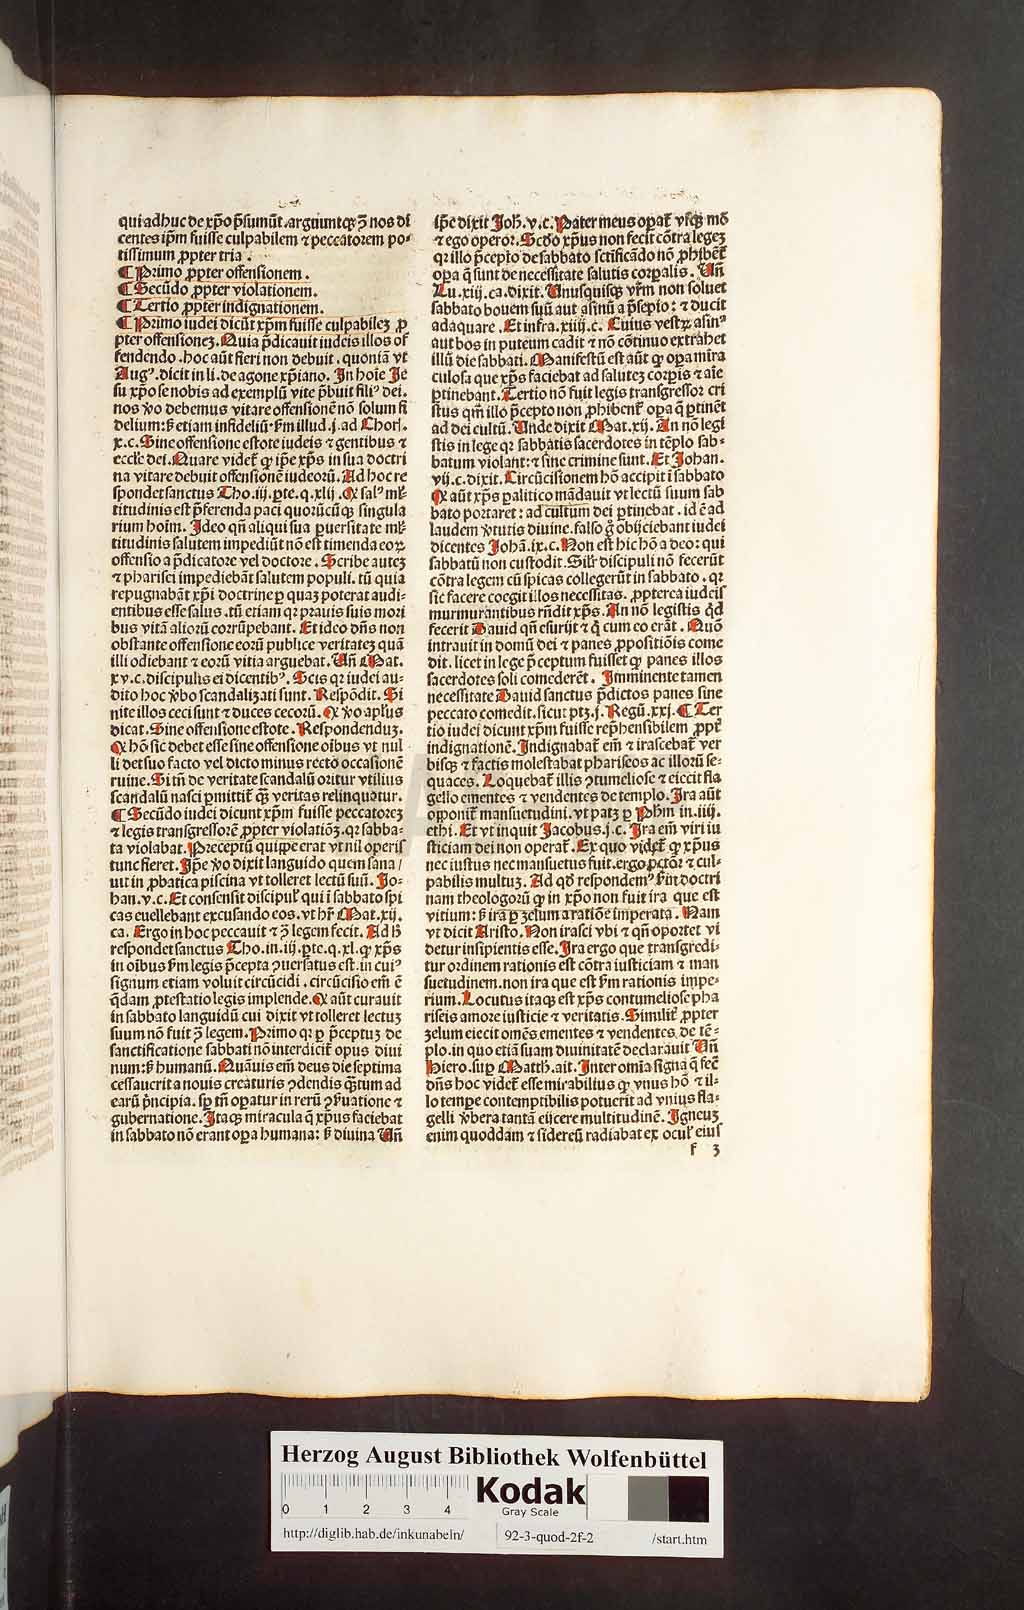 qui adhuc de xp̄o p̄sumūt .arguuntqꝫ ꝯ̄ nos di
centes ip̄m fuisse culpabilem ⁊ peccatorem po⸗
tissimum ꝓpter tria .
¶ Primo ꝓpter offensionem .
¶ Secūdo ꝓpter violationem.
¶ Tertio ꝓpter indignationem.
¶ Primo iudei dicūt xp̄m fuisse culpabileꝫ ꝓ
pter offensioneꝫ. Quia p̄dicauit iudeis illos of
fendendo . hoc aūt fieri non debuit . quoniā vt
Augꝰ. dicit in li. de agone xp̄iano. In hoīe Je
su xp̄o se nobis ad exemplū vite p̄buit filiꝰ dei.
nos v̄o debemus vitare offensionē nō solum fi
delium: s̄ꝫ etiam infideliū. s̄m illud .j. ad Chorī.
x.c. Sine offensione estote iudeis ⁊ gentibus ⁊
eccl̄e dei. Quare videt̄ qꝫ ip̄e xp̄s in sua doctri
na vitare debuit offensionē iudeorū. Ad hoc re
spondet sanctus Tho. iij. ꝑte. q. xlij. Q̄ salꝰ ml̄
titudinis est p̄ferenda paci quorūcūqꝫ singula
rium hoīm. Ideo qn̄ aliqui sua ꝑuersitate ml̄
titudinis salutem impediūt nō est timenda eoꝝ
offensio a p̄dicatore vel doctore . Scribe auteꝫ
⁊ pharisei impediebāt salutem populi. tū quia
repugnabāt xp̄i doctrine ꝑ quaꝫ poterat audi⸗
entibus esse salus . tū etiam qꝛ prauis suis mori
bus vitā aliorū corrūpebant. Et ideo dn̄s non
obstante offensione eorū publice veritateꝫ quā
illi odiebant ⁊ eorū vitia arguebat. Vn̄ Mat.
xv.c. discipulis ei dicentibꝰ. Scis qꝛ iudei au⸗
dito hoc v̄bo scandalizati sunt. Respōdit. Si
nite illos ceci sunt ⁊ duces cecorū. Q̄ v̄o apl̄us
dicat. Sine offensione estote. Respondenduꝫ.
Q̄ hō sic debet esse sine offensione oībus vt nul
li det suo facto vel dicto minus recto occasionē
ruine. Si tn̄ de veritate scandalū oritur vtilius
scandalū nasci ꝑmittit̄ qꝫ veritas relinquatur.
¶ Secūdo iudei dicunt xp̄m fuisse peccatoreꝫ
⁊ legis transgressorē ꝓpter violatiōꝫ. qꝛ sabba⸗
ta violabat. Preceptū quippe erat vt nil operis
tunc fieret. Ip̄e v̄o dixit languido quem sana/
uit in ꝓbatica piscina vt tolleret lectū suū. Jo⸗
han. v.c. Et consensit discipul̄ qui ī sabbato spi
cas euellebant excusando eos. vt hr̄ Mat. xij.
ca. Ergo in hoc peccauit ⁊ ꝯ̄ legem fecit. Ad h̄
respondet sanctus Tho. in. iij. ꝑte. q. xl. qꝫ xp̄s
in oībus s̄m legis p̄cepta ꝯuersatus est. in cuiꝰ
signum etiam voluit circūcidi . circūcisio em̄ ē
q̄dam ꝓtestatio legis implende. Q̄ aūt curauit
in sabbato languidū cui dixit vt tolleret lectuꝫ
suum nō fuit ꝯ̄ legem. Primo qꝛ ꝑ p̄ceptuꝫ de
sanctificatione sabbati nō interdicit̄ opus diui
num: s̄ꝫ humanū. Quāuis em̄ deus die septima
cessauerit a nouis creaturis ꝯdendis q̄tum ad
earū p̄ncipia. sꝑ tn̄ oꝑatur in rerū ꝯs̄uatione ⁊
gubernatione. Itaqꝫ miracula q̄ xp̄us faciebat
in sabbato nō erant oꝑa humana: s̄ꝫ diuina Vn̄
ip̄e dixit Joh̄. v.c. Pater meus oꝑat̄ vsqꝫ mō
⁊ ego operor. Scd̄o xp̄us non fecit cōtra legeꝫ
qꝛ illo p̄cepto de sabbato sc̄tificādo nō ꝓhibēt̄
oꝑa q̄ sunt de necessitate salutis corꝑalis. Vn̄
Lu. xiij. ca. dixit. Vnusquisqꝫ vr̄m non soluet
sabbato bouem suū aut asinū a p̄sepio: ⁊ ducit
adaquare . Et infra. xiiij. c. Cuius vestꝝ asinꝰ
aut bos in puteum cadit ⁊ nō cōtinuo extrahet
illū die sabbati. Manifestū est aūt qꝫ oꝑa mira
culosa que xp̄s faciebat ad saluteꝫ corꝑis ⁊ aīe
ꝑtinebant. Tertio nō fuit legis transgressor cri
stus qm̄ illo p̄cepto non ꝓhibent̄ oꝑa q̄ ꝑtinēt
ad dei cultū. Vnde dixit Mat. xij. An nō legi
stis in lege qꝛ sabbatis sacerdotes in tēplo sab⸗
batum violant: ⁊ sine crimine sunt. Et Johan.
vij. c. dixit. Circūcisionem hō accipit ī sabbato
Q̄ aūt xp̄s ꝑalitico mādauit vt lectū suum sab
bato portaret : ad cultum dei ꝑtinebat . id ē ad
laudem v̄tutis diuine. falso ḡ obijciebant iudei
dicentes Johā. ix. c. Non est hic hō a deo: qui
sabbatū non custodit. Sil̄r discipuli nō fecerūt
cōtra legem cū spicas collegerūt in sabbato . qꝛ
sic facere coegit illos necessitas. ꝓpterea iudeis
murmurantibus rn̄dit xp̄s. An nō legistis qd̄
fecerit Dauid qn̄ esurijt ⁊ q̄ cum eo erāt. Quō
intrauit in domū dei ⁊ panes ꝓpositiōis come
dit. licet in lege p̄ceptum fuisset qꝫ panes illos
sacerdotes soli comederēt. Imminente tamen
necessitate Dauid sanctus p̄dictos panes sine
peccato comedit. sicut ptꝫ. j. Regū. xxj. ¶ Ter
tio iudei dicunt xp̄m fuisse rep̄hensibilem ꝓpt̄
indignationē. Indignabat̄ em̄ ⁊ irascebat̄ ver
bisqꝫ ⁊ factis molestabat phariseos ac illorū se⸗
quaces. Loquebat̄ illis ꝯtumeliose ⁊ eiecit fla
gello ementes ⁊ vendentes de templo. Ira aūt
opponit̄ mansuetudini. vt patꝫ ꝑ Ph̄m in. iiij.
ethi. Et vt inquit Jacobus. j. c. Ira em̄ viri iu
sticiam dei non operat̄. Ex quo videt̄ qꝫ xp̄us
nec iustus nec mansuetus fuit. ergo pctōr ⁊ cul⸗
pabilis multuꝫ. Ad qd̄ respondemꝰ s̄m doctri
nam theologorū qꝫ in xp̄o non fuit ira que est
vitium: s̄ꝫ ira ꝑ zelum a ratiōe imperata. Nam
vt dicit Aristo. Non irasci vbi ⁊ qn̄ oportet vi
detur insipientis esse. Ira ergo que transgredi⸗
tur ordinem rationis est cōtra iusticiam ⁊ man
suetudinem. non ira que est s̄m rationis impe⸗
rium. Locutus itaqꝫ est xp̄s contumeliose pha
riseis amore iusticie ⁊ veritatis. Similit̄ ꝓpter
zelum eiecit omēs ementes ⁊ vendentes de tē⸗
plo. in quo etiā suam diuinitatē declarauit Vn̄
Hiero. suꝑ Matth. ait. Inter omīa signa q̄ fec̄
dn̄s hoc videt̄ esse mirabilius qꝫ vnus hō ⁊ il⸗
lo tempe contemptibilis potuerit ad vnius fla⸗
gelli v̄bera tantā eijcere multitudinē. Igneuꝫ
enim quoddam ⁊ sidereū radiabat ex ocul̄ eius
f 3
Herzog August Bibliothek Wolfenbüttel
0 1 2 3 4
Kodak
Gray Scale
http://diglib.hab.de/inkunabeln/ 92-3-quod-2f-2 /start.htm